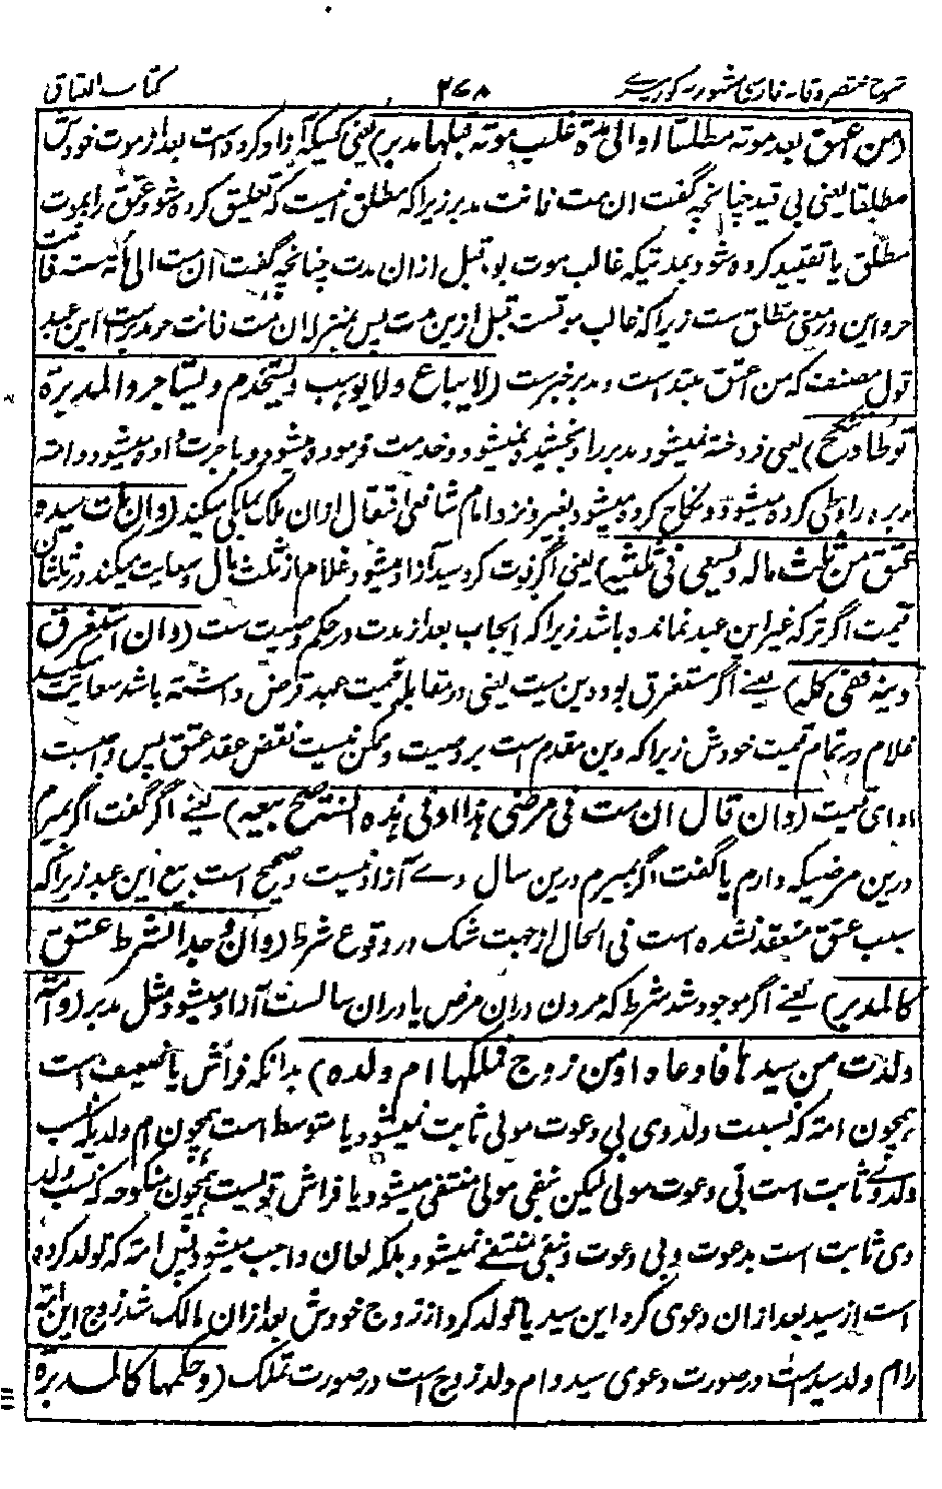 شرح مختصر وقایہ فارسی مشہور بہ کور میرے ۲۷۸ کتاب العتاق
(من اعتق بعد موته مطلقا او الی مدة غلب موته قبلها مدبر) یعنی کسیکه آزاد کرده است بعد از موت خودش
مطلقا یعنی بی قید چنانچه گفت ان مت فانت مدبر زیرا که مطلق انیست که تعلیق کرده شود عتق را بموت
مطلق یا تقیید کرده شود بمدتیکه غالب موت بود قبل ازان مدت چنانچه گفت ان مت الی مائة سنة فانت
حر و این در معنی مطلق ست زیرا که غالب موتست قبل ازین مدت پس بمنزله ان مت فانت حر مدبرست این عبد
قول مصنف که من اعتق مبتداست و مدبر خبرست (لا یباع ولا یوهب ویستخدم ویستاجر والمدبرة
توطأ وتنکح) یعنی فروخته نمیشود مدبر را و بخشیده نمیشود و خدمت فرموده میشود و باجرت داده میشود و امته
مدبره را وطی کرده میشود و نکاح کرده میشود بغیر و نزد امام شافعی انتقال ازان ملک بملکی میکند (وان مات سیده
عتق من ثلث ماله وسعی فی ثلثیه) یعنی اگر فوت کرد سید آزاد میشود غلام از ثلث مال و سعایت میکند در ثلثان
قیمت اگر ترکه غیر این عبد نمانده باشد زیرا که ایجاب بعد از مدت در حکم وصیت ست (وان استغرق
دینه ففی کله) یعنے اگر مستغرق بود دین سیت یعنی در مقابله قیمت عبد قرض داشته باشد سعایت میکند
غلام در تمام قیمت خودش زیرا که دین مقدم است بر وصیت و ممکن نیست نقض عقد عتق پس واجبست
ادای قیمت (وان قال ان مت فی مرضی هذا او فی هذه السنة صح بیعه) یعنے اگر گفت اگر بمیرم
درین مرضیکه دارم یا گفت اگر بمیرم درین سال وے آزاد نیست و صحیح است بیع این عبد زیرا که
سبب عتق منعقد نشده است فی الحال از جهت شک در وقوع شرط (وان وجد الشرط عتق
کالمدبر) یعنے اگر موجود شد شرط که مردن دران مرض یا دران سالست آزاد میشود مثل مدبر (وامة
ولدت من سیدها فادعاه او من زوج فملکها ام ولده) بدانکه فراش یا ضعیف است
همچون امته که نسبت ولد وی بی دعوت مولی ثابت نمیشود یا متوسط است همچون ام ولد یکه نسب
ولد وے ثابت است بی دعوت مولی لیکن بنفی مولی منتفی میشود یا فراش قویست همچون منکوحه که نسب ولد
وی ثابت است بدعوت و بی دعوت و بنفی منتفے نمیشود بلکه لعان واجب میشود پس امته که تولد کرده
است از سید بعد ازان دعوی کرد این سید یا تولد کرد از زوج خودش بعد ازان مالک شد زوج این امته
را ام ولد سیدست در صورت دعوی سید و ام ولد زوج است در صورت تملک (وحکمها کالمدبرة